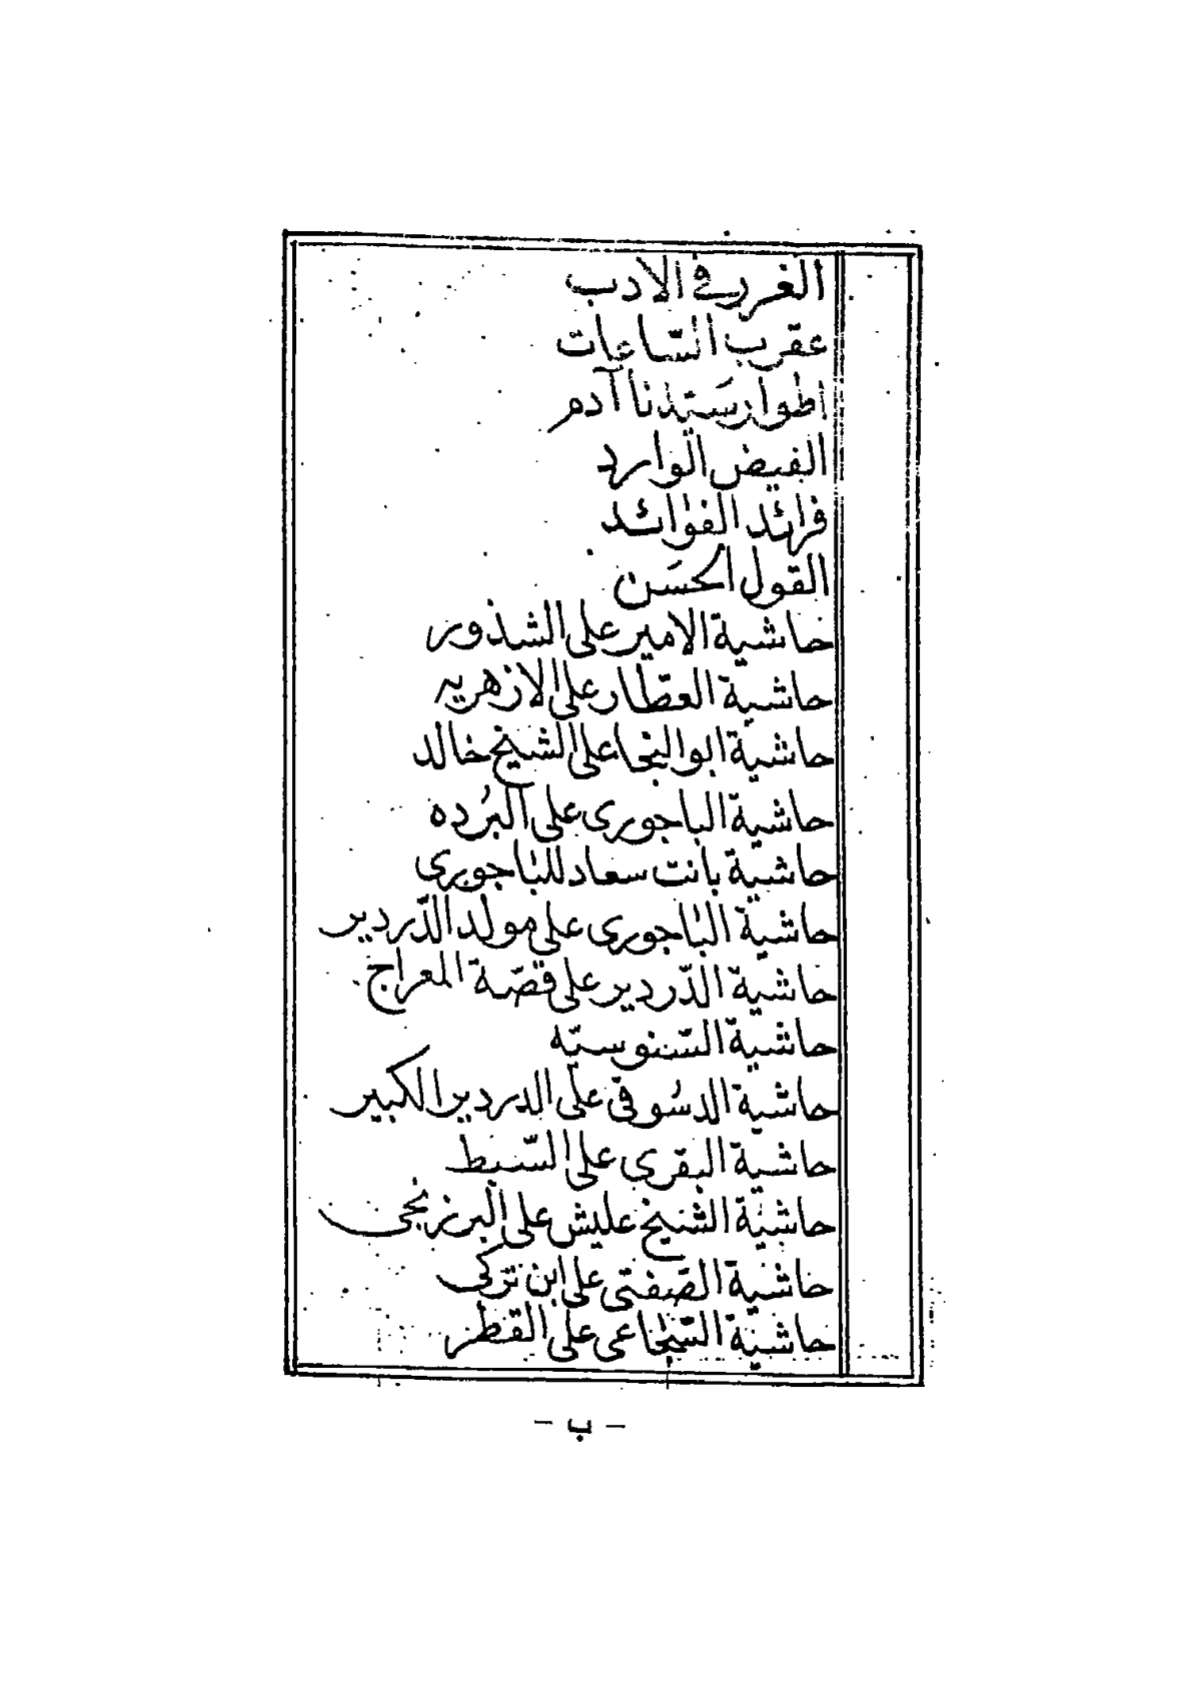 الغرر في الادب
عقرب السّاعات
اطوار سَيدنا آدم
الفيض الوارد
فرائد الفوائد
القول الحسَن
حاشية الامير على الشذور
حاشية العطّار على الازهريه
حاشية ابو النجا على الشيخ خالد
حاشية الباجورى على البُرده
حاشية بانت سعاد للباجورى
حاشية الباجورى على مولد الدّردير
حاشية الدّردير على قصّة المعراج
حاشية السّنوسيّه
حاشية الدسُوقى على الدردير الكبير
حاشية البقرى على السّبط
حاشية الشيخ عليش على البرزنجى
حاشية الصّفتى على ابن تركى
حاشية السّجاعى على القطر
- ب -